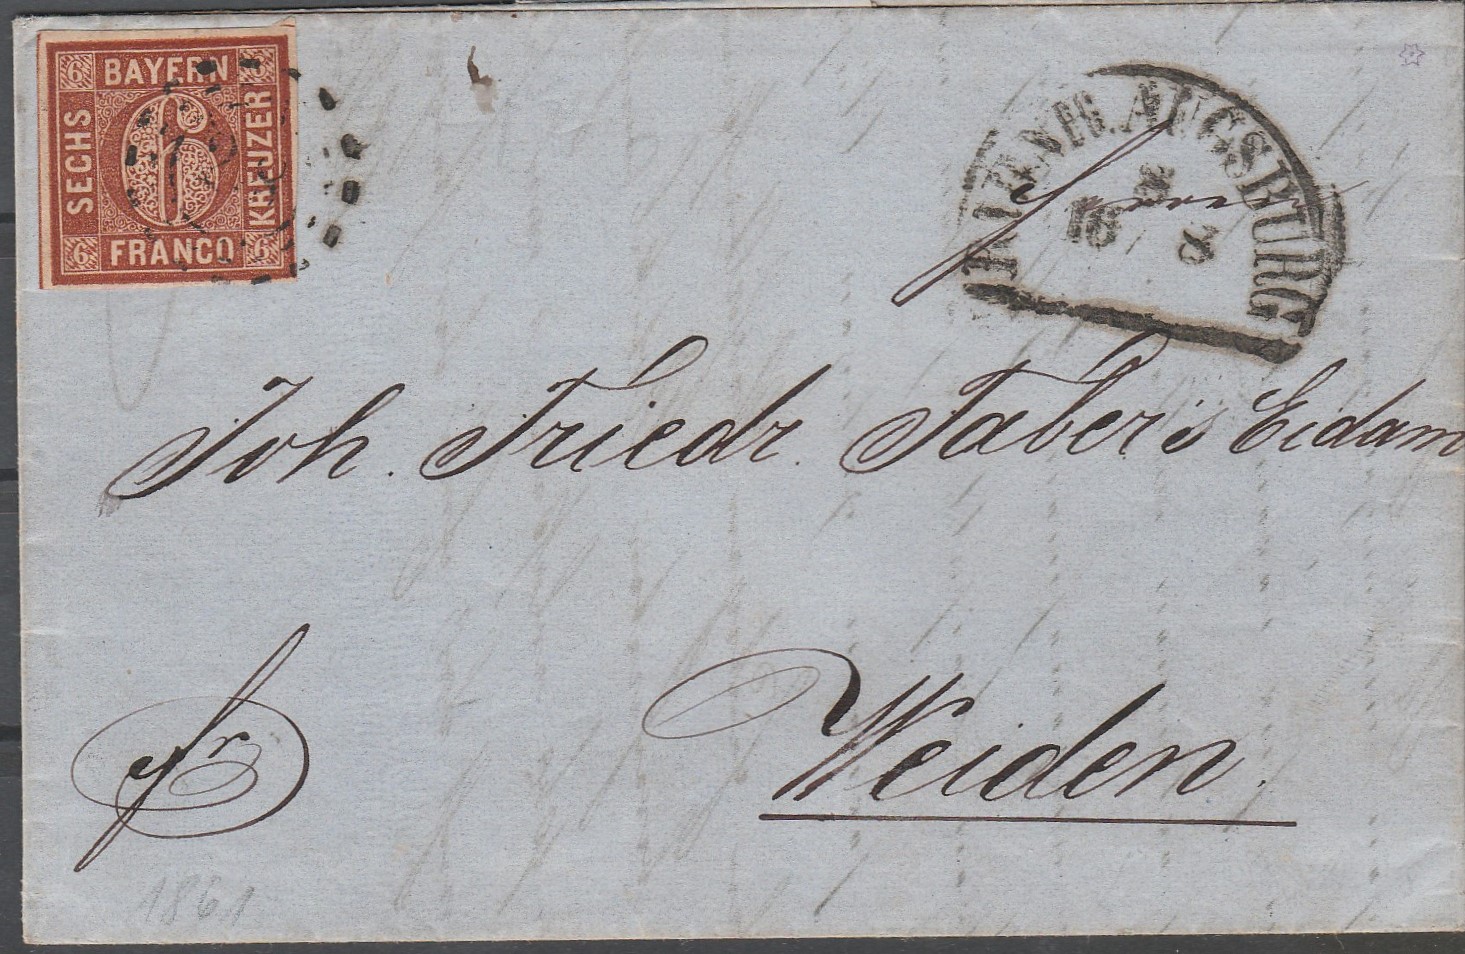 6 BAYERN 6
SECHS
6
KREUZER
6 FRANCO 6
AUGSBURG
Herren
Joh. Friedr. Faber's Eidam
fr
Weiden.
1861